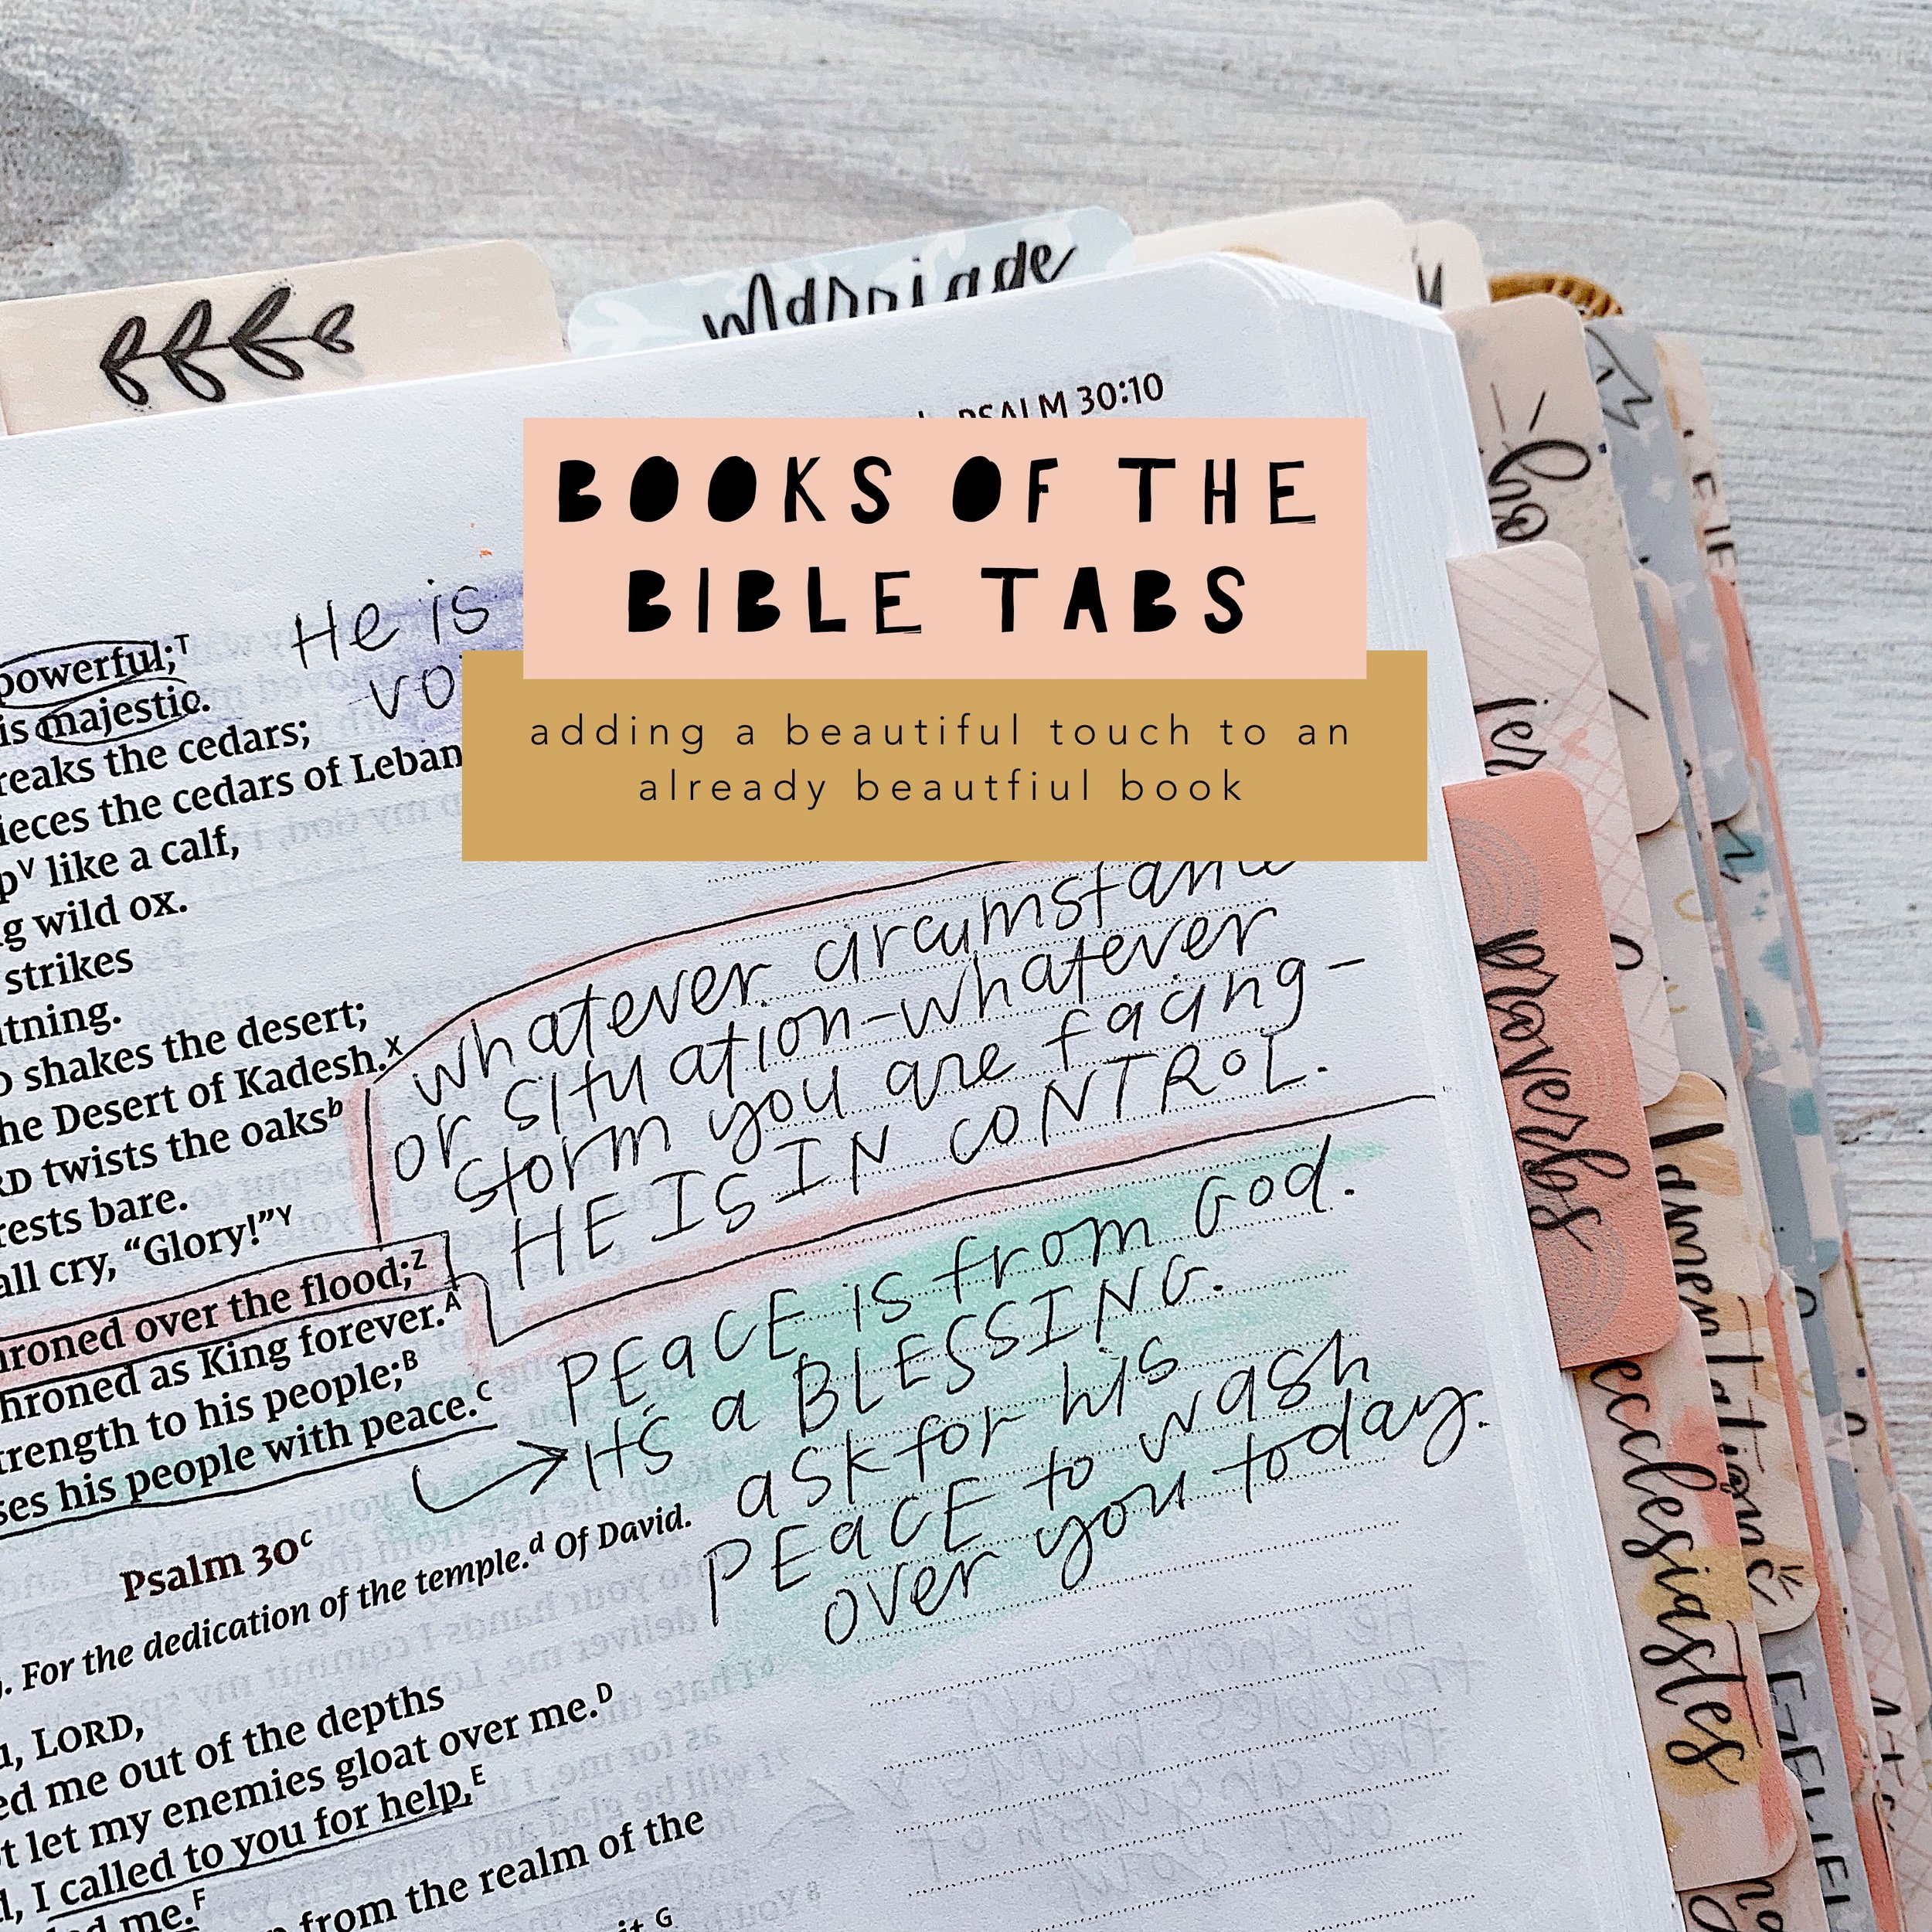 Marriage
PSALM 30:10
BOOKS OF THE
BIBLE TABS
adding a beautiful touch to an
already beautfiul book
He is
powerful;T
is majestic.
reaks the cedars;
ieces the cedars of Leban
pV like a calf,
g wild ox.
strikes
tning.
shakes the desert;
he Desert of Kadesh.X
RD twists the oaksb
rests bare.
all cry, “Glory!”Y
hroned over the flood;Z
hroned as King forever.A
trength to his people;B
ses his people with peace.C
whatever circumstance
or situation-whatever
storm you are facing-
HE IS IN CONTROL.
PEACE is from God.
It's a BLESSING.
ask for his
PEACE to wash
over you today.
Psalm 30c
. For the dedication of the temple.d Of David.
, LORD,
ed me out of the depths
t let my enemies gloat over me.D
, I called to you for help,E
me.F
from the realm of the
proverbs
ecclesiastes
Lamentations
EZEKIEL